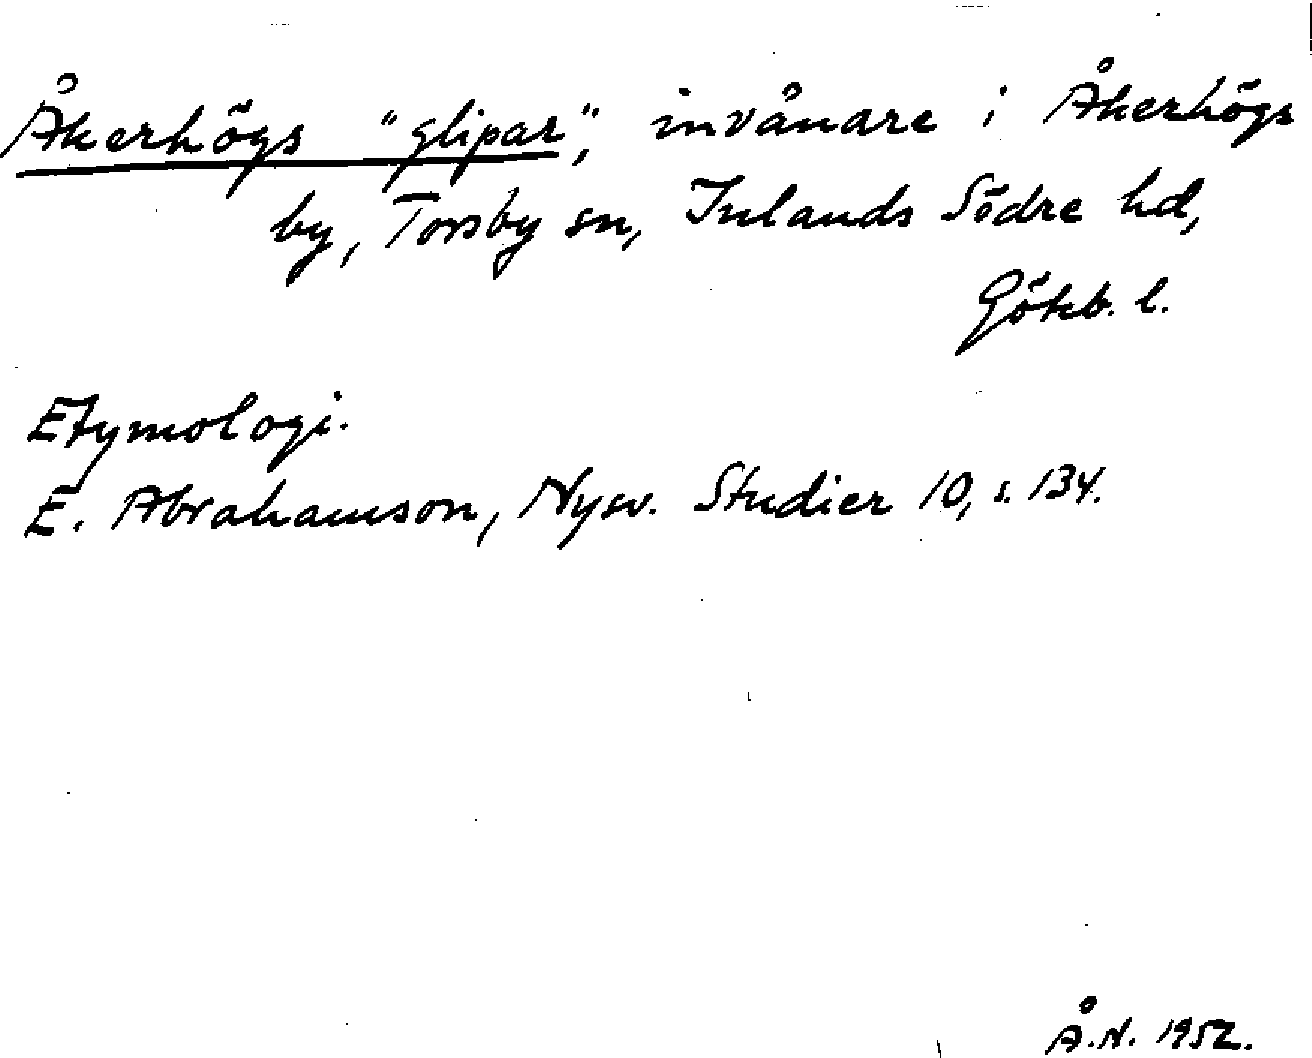 Åkerhögs "glipar", invånare i Åkerhögs
by, Torsby sn, Inlands Södre hd,
Göteb. l.
Etymologi.
E. Abrahamson, Nysv. Studier 10, s. 134.
Å.N. 1952.